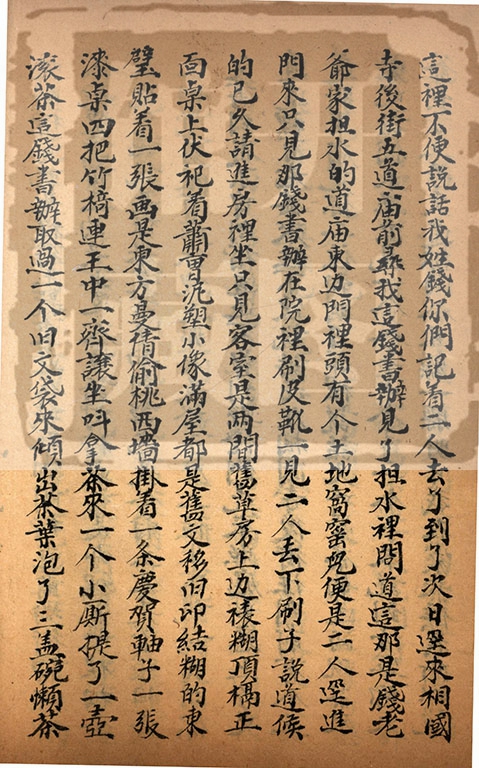 這裡不便說話我姓錢你們記着二人去了到了次日逕來相國
寺後街五道庙前尋我這錢書辦見了担水裡問道這那是錢老
爺家担水的道庙東边門裡頭有个土地窩窯児便是二人逕進
門來只見那錢書辦在院裡刷皮靴一見二人丢下刷子說道候
的已久請進房裡坐只見客室是两間舊草房上边裱糊頂槅正
面桌上伏祀着蕭曹泥塑小像滿屋都是舊文移旧印結糊的東
壁貼着一張画是東方曼倩偷桃西墻掛着一条慶賀軸子一張
漆桌四把竹椅連王中一齊讓坐呌拿茶來一个小厮提了一壺
滚茶這錢書辦取過一个旧文袋來傾出茶葉泡了三盖碗懶茶